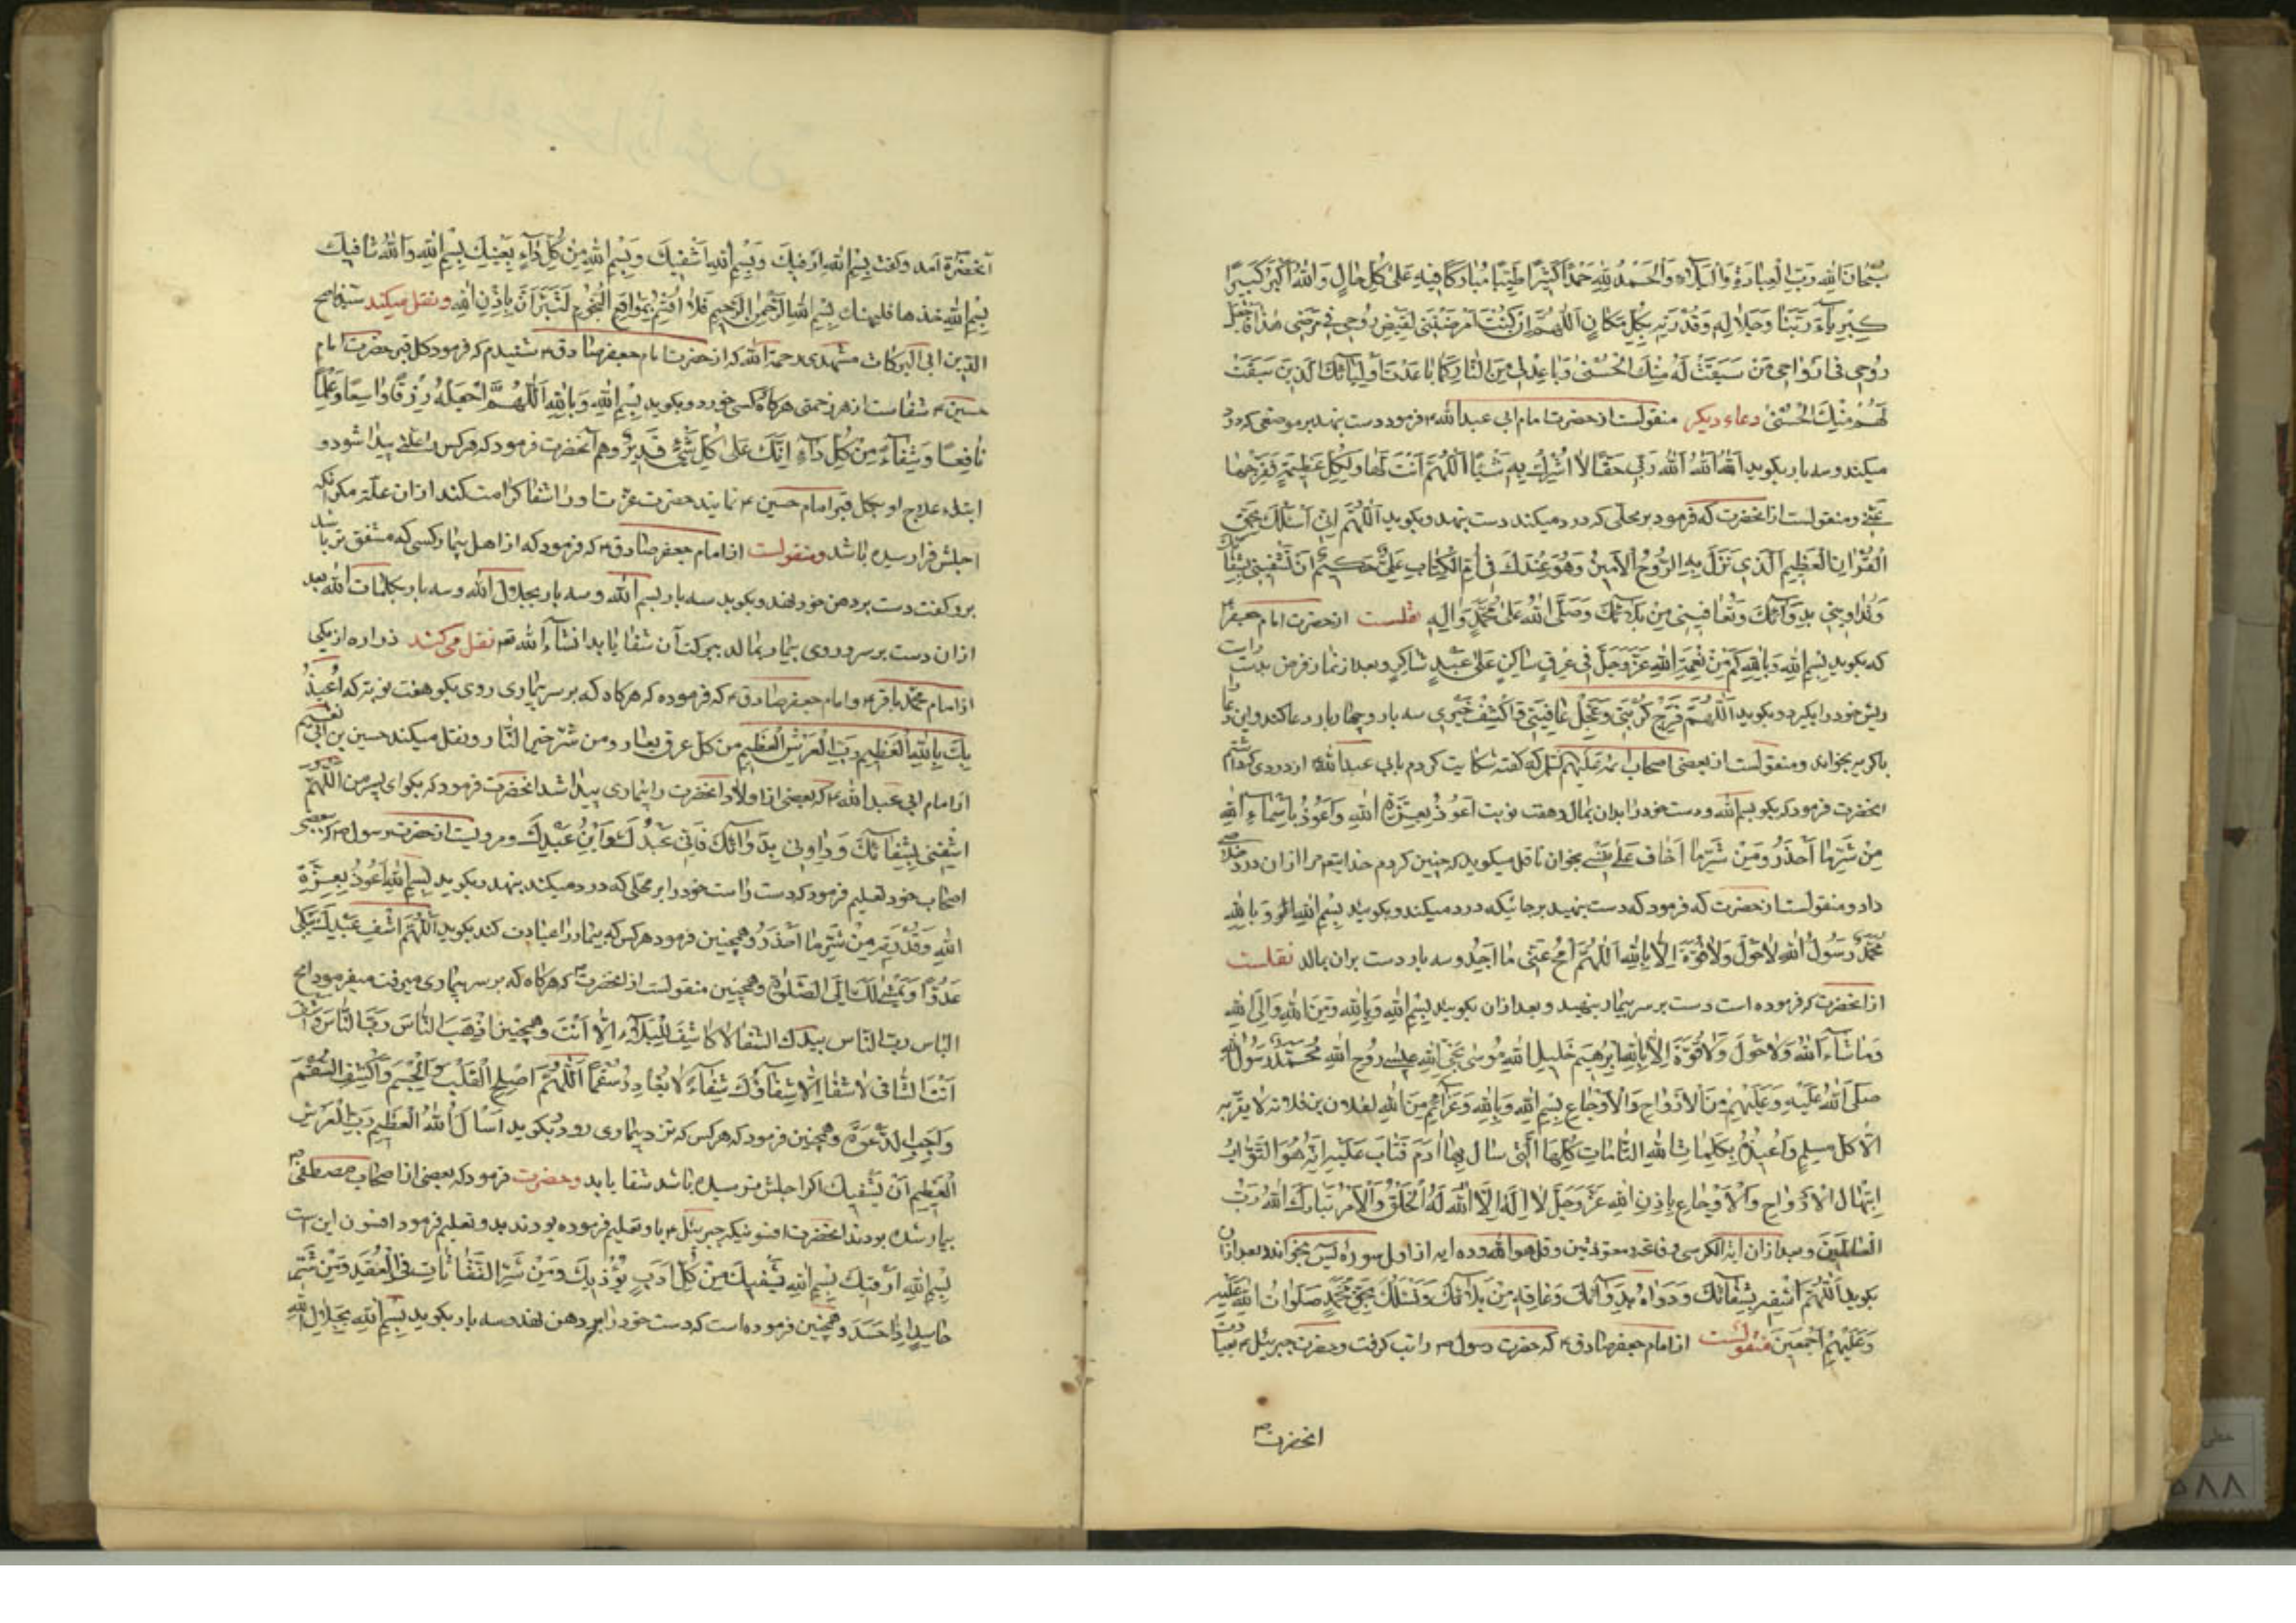 سُبْحَانَ اللهِ رَبِّ الْعِبَادِ وَالْبِلَادِ وَالْحَمْدُ لِلّهِ حَمْدًا كَثِيرًا طَيِّبًا مُبَارَكًا فِيهِ عَلىٰ كُلِّ حَالٍ وَاللهُ اَكْبَرُ كَبِيرًا
كِبْرِيَاءَ رَبِّنَا وَجَلَالِهِ وَقُدْرَتِهِ بِكُلِّ مَكَانٍ اَللّهُمَّ اِنْ كُنْتَ اَمْرَضْتَنِي لِقَبْضِ رُوحِي فِي مَرَضِي هٰذَا فَاجْعَلْ
رُوحِي فِي اَرْوَاحِ مَنْ سَبَقَتْ لَهُ مِنْكَ الْحُسْنىٰ وَبَاعِدْنِي مِنَ النَّارِ كَمَا بَاعَدْتَ اَوْلِيَائَكَ الَّذِينَ سَبَقَتْ
لَهُمْ مِنْكَ الْحُسْنىٰ دعاء دیکر منقولست از حضرت امام ابی عبد الله ۴ فرمود دست بنهد بر موضعی که درد
میکند و سه بار بکوید اَللهُ اَللهُ اَللهُ رَبِّي حَقًّا لَا اُشْرِكُ بِهِ شَيْئًا اَللّهُمَّ اَنْتَ لَهَا وَلِكُلِّ عَظِيمَةٍ فَفَرِّجْهَا
عَنِّي ومنقولست از انحضرت که فرمود بر محلی که درد میکند دست بنهد و بکوید اَللّهُمَّ اِنِّي اَسْئَلُكَ بِحَقِّ
الْقُرْاٰنِ الْعَظِيمِ الَّذِي نَزَلَ بِهِ الرُّوحُ الْاَمِينُ وَهُوَ عِنْدَكَ فِي اُمِّ الْكِتَابِ عَلِيٌّ حَكِيمٌ اَنْ تَشْفِيَنِي بِشِفَائِكَ
وَتُدَاوِيَنِي بِدَوَائِكَ وَتُعَافِيَنِي مِنْ بَلَائِكَ وَصَلَّى اللهُ عَلىٰ مُحَمَّدٍ وَاٰلِهِ نقلست از حضرت امام جعفر ۴
که بکوید بِسْمِ اللهِ وَبِاللهِ كَمْ مِنْ نِعْمَةِ اللهِ عَزَّوَجَلَّ فِي عِرْقٍ سَاكِنٍ عَلىٰ عَبْدٍ شَاكِرٍ و بعد از نماز فرض بدست راست
ریش خود را بکیرد و بکوید اَللّهُمَّ فَرِّجْ كُرْبَتِي وَعَجِّلْ عَافِيَتِي وَاكْشِفْ ضُرِّي سه بار و چهار بار دعا کند و این دعا
با کریه بخواند ومنقولست از بعضی اصحاب ائمه علیهم السلم که کفته شکایت کردم بابی عبد الله ۴ از دردی که داشتم
انحضرت فرمود که بکو بسم الله و دست خود را بدان بمال و هفت نوبت اَعُوذُ بِعِزَّةِ اللهِ وَاَعُوذُ بِاَسْمَاءِ اللهِ
مِنْ شَرِّ مَا اَحْذَرُ وَمِنْ شَرِّ مَا اَخَافُ عَلىٰ نَفْسِي بخوان ناقل میکوید که چنین کردم خدایتعم مرا از ان درد خلاصی
داد ومنقولست از حضرت که فرمود که دست بنهید بر جائیکه درد میکند و بکویید بِسْمِ اللهِ وَبِاللهِ
مُحَمَّدٌ رَسُولُ اللهِ لَا حَوْلَ وَلَا قُوَّةَ اِلَّا بِاللهِ اَللّهُمَّ امْحُ عَنِّي مَا اَجِدُ و سه بار دست بران بمالد نقلست
از انحضرت که فرموده است دست بر سر بیمار بنهید و بعد از ان بکویید بِسْمِ اللهِ وَبِاللهِ وَمِنَ اللهِ وَاِلَى اللهِ
وَمَا شَاءَ اللهُ وَلَا حَوْلَ وَلَا قُوَّةَ اِلَّا بِاللهِ اِبْرٰهِيمُ خَلِيلُ اللهِ مُوسىٰ نَجِيُّ اللهِ عِيسىٰ رُوحُ اللهِ مُحَمَّدٌ رَسُولُ اللهِ
صَلَّى اللهُ عَلَيْهِ وَعَلَيْهِمْ مِنَ الْاَرْوَاحِ وَالْاَوْجَاعِ بِسْمِ اللهِ وَبِاللهِ وَعَزَائِمُ مِنَ اللهِ لفلان بن فلانه لا یقربه
الّا کل مسلم وَاُعِيذُهُ بِكَلِمَاتِ اللهِ التَّامَّاتِ كُلِّهَا الَّتِي سَاَلَ بِهَا اٰدَمُ فَتَابَ عَلَيْهِ اِنَّهُ هُوَ التَّوَّابُ
الْاَرْوَاحِ وَالْاَوْجَاعِ بِاِذْنِ اللهِ عَزَّوَجَلَّ لَا اِلٰهَ اِلَّا اللهُ لَهُ الْخَلْقُ وَالْاَمْرُ تَبَارَكَ اللهُ رَبُّ
الْعَالَمِينَ و بعد از ان ایة الکرسی و فاتحه و معوذتین و قل هو الله و ده ایه از اول سوره یس بخواند و بعد از ان
بکوید اَللّهُمَّ اشْفِهِ بِشِفَائِكَ وَدَوَاهُ بِدَوَائِكَ وَعَافِهِ مِنْ بَلَائِكَ وَنَسْئَلُكَ بِحَقِّ مُحَمَّدٍ صَلَوَاتُ اللهِ عَلَيْهِ
وَعَلَيْهِمْ اَجْمَعِينَ منقولست از امام جعفر صادق ۴ که حضرت رسول را تب کرفت و حضرت جبرئیل ۴ بعیادت
انحضرت
آنحضرة آمد و کفت بِسْمِ اللهِ اَرْقِيكَ وَبِسْمِ اللهِ اَشْفِيكَ وَبِسْمِ اللهِ مِنْ كُلِّ دَاءٍ يَعْنِيكَ بِسْمِ اللهِ وَاللهُ شَافِيكَ
بِسْمِ اللهِ خذها فلیهنك بِسْمِ اللهِ الرَّحْمٰنِ الرَّحِيمِ فَلَا اُقْسِمُ بِمَوَاقِعِ النُّجُومِ لَتَبْرَاَنَّ بِاِذْنِ اللهِ ونقل میکند شیخ صالح
الدین ابی البرکات مشهدی رحمة الله که از حضرت امام جعفر صادق ۴ شنیدم که فرمود کل قبر حضرت امام
حسین ۴ شفاست از هر زحمتی هرکاه کسی خورد و بکوید بِسْمِ اللهِ وَبِاللهِ اَللّهُمَّ اجْعَلْهُ رِزْقًا وَاسِعًا وَعِلْمًا
نَافِعًا وَشِفَاءً مِنْ كُلِّ دَاءٍ اِنَّكَ عَلىٰ كُلِّ شَيْءٍ قَدِيرٌ و هم آنحضرت فرمود که هرکس را علتی پیدا شود و
ابتداء علاج او بکل قبر امام حسین ۴ نمایند حضرت عزت او را شفا کرامت کند از ان علّت مکر انکه
اجلش فرا رسیده باشد ومنقولست از امام جعفر صادق ۴ که فرمود که از اهل بیمار کسی که مشفق تر باشد
برو کفت دست بر دهن خود نهد و بکوید سه بار بسم الله و سه بار بجلال الله و سه بار بکلمات الله بعد
از ان دست بر سر و روی بیمار بمالد ببرکت آن شفا یابد انشاء الله تعم نقل می کند زراره از یکی
از امام محمّد باقر ۴ و امام جعفر صادق ۴ که فرموده که هرکاه که بر سر بیماری روی بکو هفت نوبت که اُعِيذُ
بِكَ بِاللهِ الْعَظِيمِ رَبِّ الْعَرْشِ الْعَظِيمِ من کل عرق نعار ومن شرّ حرّ النّار ونقل میکند حسین بن ابی نعیم
از امام ابی عبد الله ۴ که بعضی از اولاد انحضرت را بیماری پیدا شد انحضرت فرمود که بکو ای پسر من اَللّهُمَّ
اشْفِنِي بِشِفَائِكَ وَدَاوِنِي بِدَوَائِكَ فَاِنِّي عَبْدُكَ وَابْنُ عَبْدِكَ ومرویست از حضرت رسول که بعضی
اصحاب خود تعلیم فرمود که دست راست خود را بر محلی که درد میکند بنهد و بکوید بِسْمِ اللهِ اَعُوذُ بِعِزَّةِ
اللهِ وَقُدْرَتِهِ مِنْ شَرِّ مَا اَحْذَرُ وهمچنین فرمود هرکس که بیمار را عیادت کند بکوید اَللّهُمَّ اشْفِ عَبْدَكَ يَنْكِي
عَدُوًّا وَيَمْشِي لَكَ اِلَى الصَّلٰوةِ وهمچنین منقولست از انحضرت که هرکاه که بر سر بیماری میرفت میفرمود امح
الباس رب الناس بیدك الشفا لَا كَاشِفَ لِلْبَلَاءِ اِلَّا اَنْتَ وهمچنین اَذْهِبِ الْبَاْسَ رَبَّ النَّاسِ وَاشْفِ
اَنْتَ الشَّافِي لَا شِفَاءَ اِلَّا شِفَاؤُكَ شِفَاءً لَا يُغَادِرُ سُقْمًا اَللّهُمَّ اَصْلِحِ الْقَلْبَ وَالْجِسْمَ وَاكْشِفِ السُّقْمَ
وَاَجِبِ الدَّعْوَةَ وهمچنین فرمود که هرکس که نزد بیماری رود بکوید اَسْاَلُ اللهَ الْعَظِيمَ رَبَّ الْعَرْشِ
الْعَظِيمِ اَنْ يَشْفِيَكَ اکر اجلش نرسیده باشد شفا یابد وحضرت فرمود که بعضی از اصحاب مصطفی
بیمار شده بودند انحضرت افسونیکه جبرئیل ۴ باو تعلیم فرموده بودند بدو تعلیم فرمود افسون این است
بِسْمِ اللهِ اَرْقِيكَ بِسْمِ اللهِ يَشْفِيكَ مِنْ كُلِّ يُؤْذِيكَ وَمِنْ شَرِّ النَّفَّاثَاتِ فِي الْعُقَدِ وَمِنْ شَرِّ
حَاسِدٍ اِذَا حَسَدَ وهمچنین فرموده است که دست خود را بر دهن نهد و سه بار بکوید بِسْمِ اللهِ بِجَلَالِ اللهِ